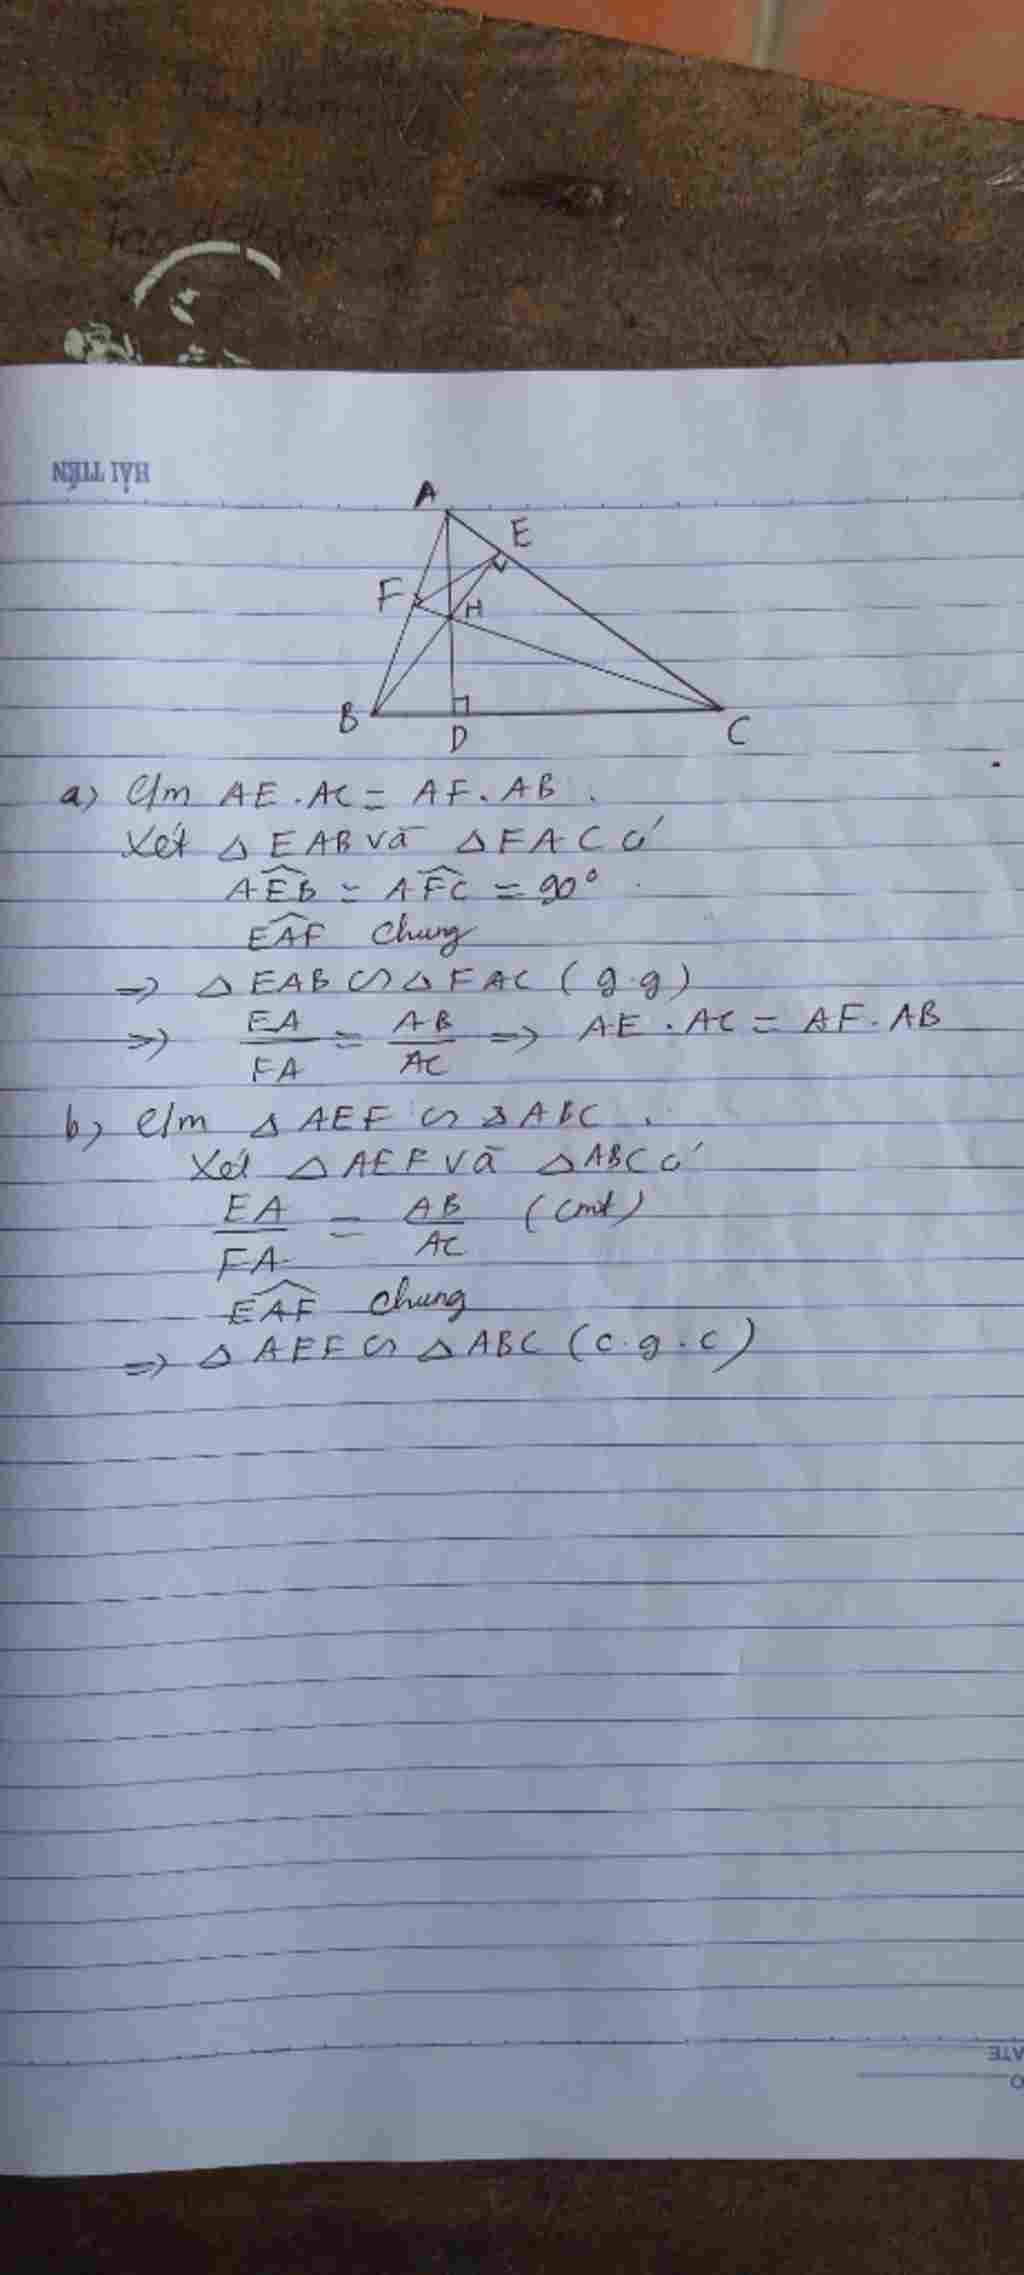 HẢI TIẾN
A
E
F
H
B
D
C
a) C/m AE . AC = AF . AB .
Xét △ EAB và △ FAC có
AEB = AFC = 90°
EAF chung
=> △ EAB ∽ △ FAC ( g.g )
=> EA/FA = AB/AC => AE . AC = AF . AB
b) C/m △ AEF ∽ △ ABC .
Xét △ AEF và △ ABC có
EA/FA = AB/AC (cmt)
EAF chung
=> △ AEF ∽ △ ABC ( c.g.c )